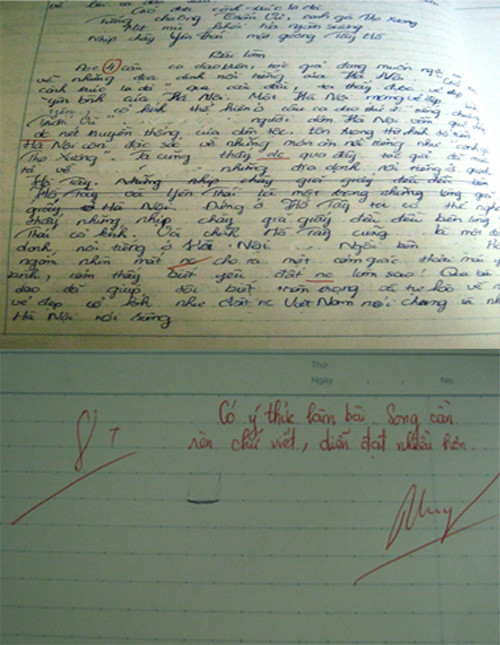 Gió đưa cành trúc la đà
Tiếng chuông Trấn Vũ, canh gà Thọ Xương
Mịt mù khói tỏa ngàn sương
Nhịp chày Yên Thái, mặt gương Tây Hồ
Bài làm
Đọc 4 câu ca dao trên, tác giả đang muốn
về những địa danh nổi tiếng của Hà Nội
cành trúc la đà" qua câu đầu, ta thấy được vẻ đẹp
yên bình của Hà Nội. Một Hà Nội mang vẻ đẹp
cổ kính thể hiện ở câu ca dao thứ 2
Trấn Vũ" người dân Hà Nội vẫn
dc nét truyền thống của dân tộc, tôn trọng
Hà Nội còn đặc sắc về những món ăn nổi tiếng như "canh gà
Thọ Xương". Ta cũng thấy dc qua đây tác giả đã
tả về những địa danh nổi tiếng ở quanh
Hồ Tây. Những nhịp chày giã giấy đều đều bên
Hồ Tây và Yên Thái là một trong những làng
giấy, ở Hà Nội. Đứng ở Hồ Tây ta có thể nghe
thấy những nhịp chày giã giấy đều đều bên làng
Thái cổ kính. Và chính Hồ Tây cũng là một địa
danh nổi tiếng ở Hà Nội. Ngồi bên
ngắm nhìn mặt nc cho ta một cảm giác thoải mái
bình, cảm thấy biết yêu đất nc làm sao! Qua bài
dao đã giúp tôi biết trân trọng và tự hào về
vẻ đẹp cổ kính như đất nc Việt Nam nói chung và
Hà Nội nói riêng
Thứ
Ngày . . No.
8+
Có ý thức làm bài. Song cần
rèn chữ viết, diễn đạt nhiều hơn.